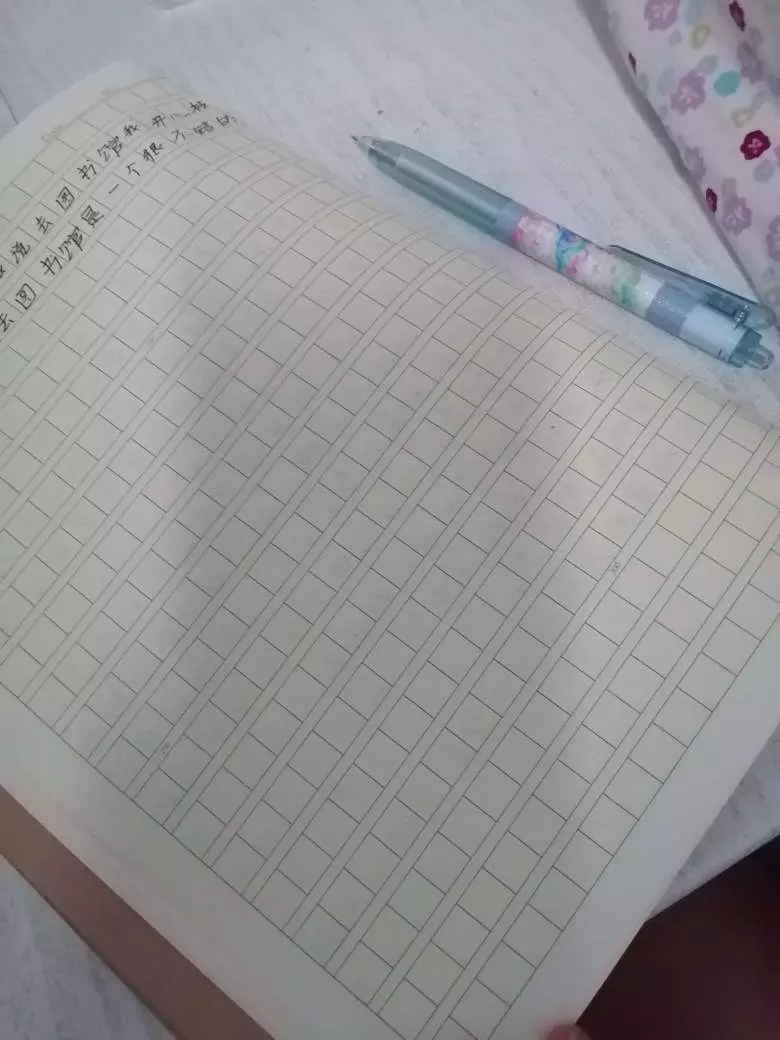 说去图书馆我开心极
去图书馆是一个很不错的